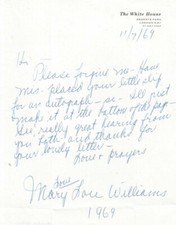 The White House
11/7/69
Hi-
Please forgive me- Have
mis-placed your little slip
for an autograph- so- I'll just
make it at the bottom of the page-
Sis, really great hearing from
you both and thanks for
your lovely letter-
Love & prayers
Love
Mary Lou Williams
1969